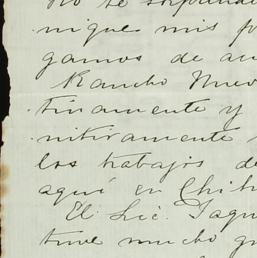 No te sorprenda
nique mis p
gamos de an
Rancho Nuev
tinamente y
nitivamente
los trabajos de
aquí en Chih
El Lic. Jaqu
tuve mucho gu